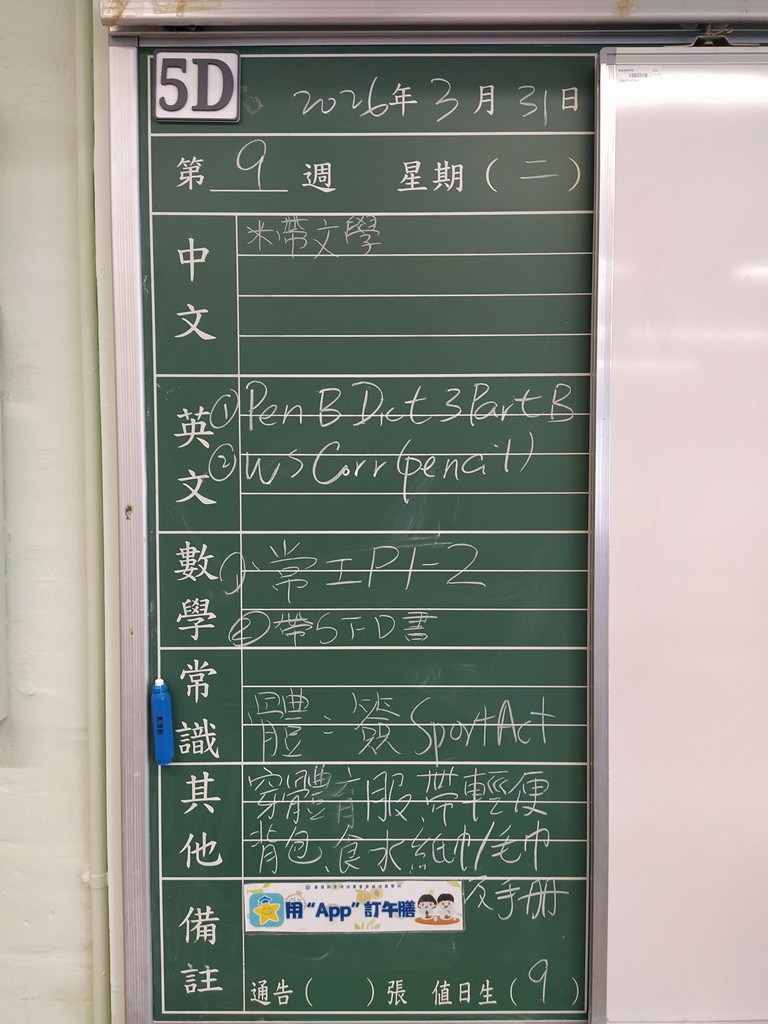 5D
2026年3月31日
第9週 星期(二)
中文
米帶文學
英文
①Pen B Dict 3 Part B
②WS Corr(pencil)
數學
①常工P1-2
②帶5下D書
常識
體：簽Sport Act
其他
穿體育服、帶輕便
背包、食水、紙巾/毛巾
及手册
備註
用“App”訂午膳
通告( )張 值日生(9)